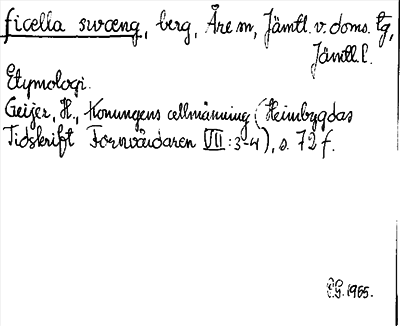 ficella swœng, berg, Åre sn, Jämtl. v. doms. tg,
Jämtl. l.
Etymologi.
Geijer, H., Konungens cellmänning (Heimbygdas
Tidskrift Fornvårdaren VII:3-4), s. 72 f.
EG. 1965.